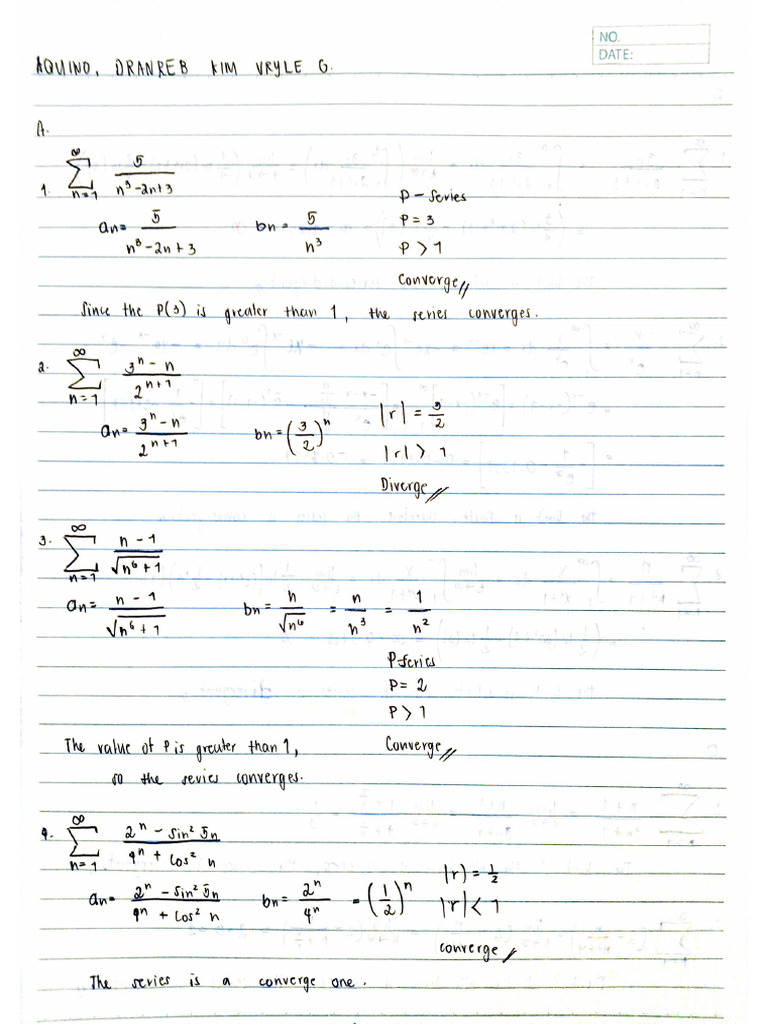 NO.
DATE:
AQUINO, DRANREB KIM VRYLE G.
A.
1. ∞ Σ n=1 5 / (n³-2n+3)
an = 5 / (n³-2n+3) bn = 5 / n³
P-series
P = 3
P > 1
Converge //
Since the P(3) is greater than 1, the series converges.
2. ∞ Σ n=1 (3ⁿ - n) / 2ⁿ⁺¹
an = (3ⁿ - n) / 2ⁿ⁺¹ bn = (3/2)ⁿ |r| = 3/2
|r| > 1
Diverge //
3. ∞ Σ n=1 (n - 1) / √(n⁶+1)
an = (n - 1) / √(n⁶+1) bn = n / √n⁶ = n / n³ = 1 / n²
P-series
P = 2
P > 1
The value of P is greater than 1, Converge //
so the series converges.
4. ∞ Σ n=1 (2ⁿ - sin² 5n) / (4ⁿ + cos² n)
an = (2ⁿ - sin² 5n) / (4ⁿ + cos² n) bn = 2ⁿ / 4ⁿ = (1/2)ⁿ |r) = 1/2
|r| < 1
converge //
The series is a converge one.